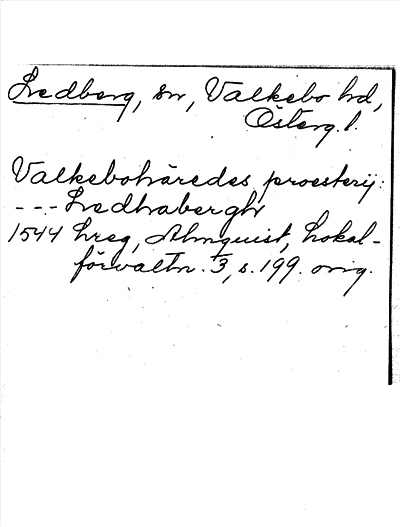 Ledberg, sn, Valkebo hd,
Österg. l.
Valkebohäredes proesterij:
--- Ledhabergh
1544 hreg, Almquist, Lokal-
förvaltn. 3, s. 199. orig.